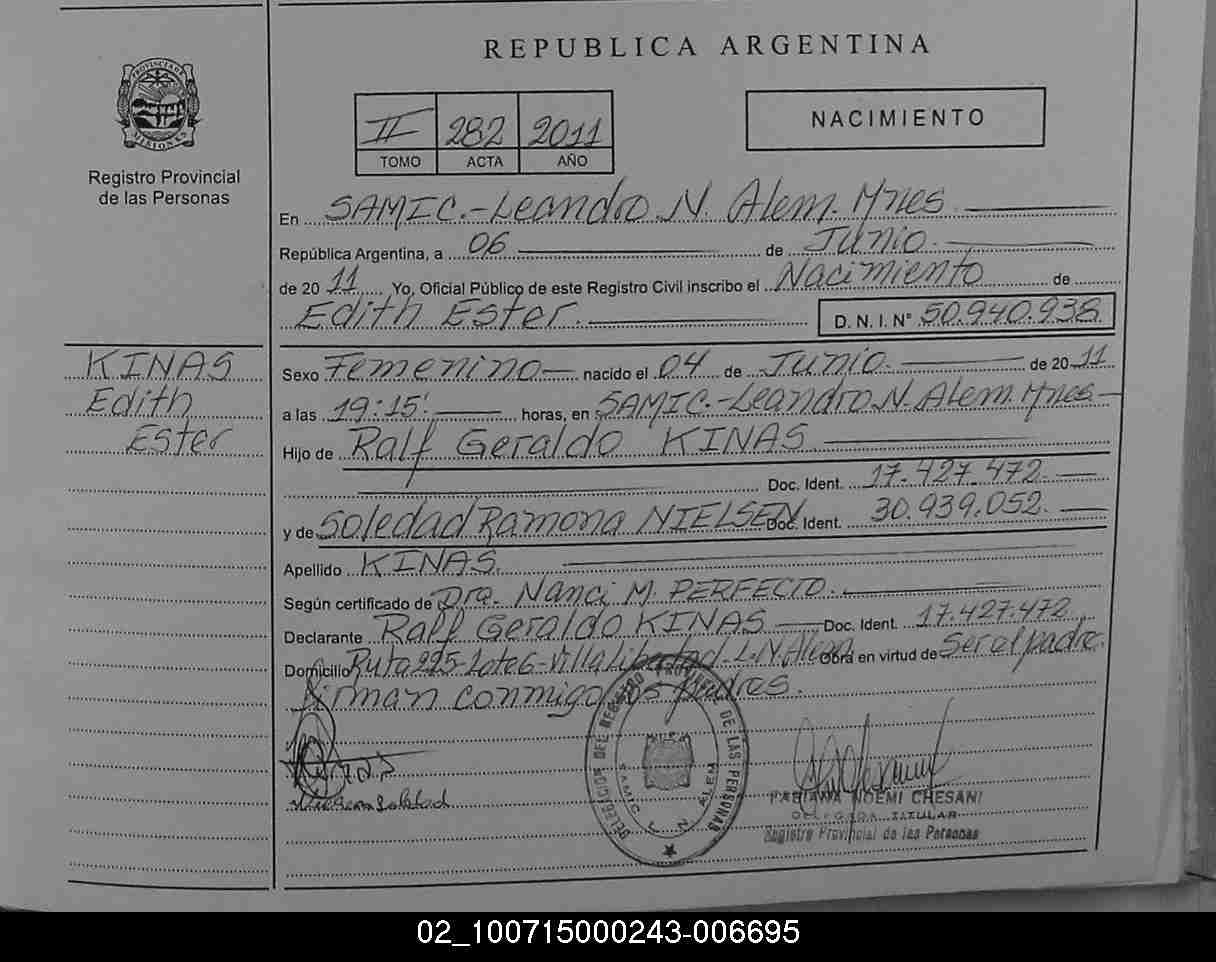 REPUBLICA ARGENTINA
PROVINCIA DE MISIONES
Registro Provincial
de las Personas
II 282 2011
TOMO ACTA AÑO
NACIMIENTO
En SAMIC.-Leandro N. Alem. Mnes
República Argentina, a 06 de Junio.
de 20 11 Yo, Oficial Público de este Registro Civil inscribo el Nacimiento de
Edith Ester. D. N. I. N° 50.940.938
KINAS
Edith
Ester
Sexo Femenino nacido el 04 de Junio. de 20 11
a las 19:15' horas, en SAMIC.-Leandro N. Alem. Mnes
Hijo de Ralf Geraldo KINAS
Doc. Ident. 17.427.472
y de Soledad Ramona NIELSEN Doc. Ident. 30.939.052.
Apellido KINAS.
Según certificado de Dra. Nanci M. PERFECTO.
Declarante Ralf Geraldo KINAS Doc. Ident. 17.427.472
Domicilio Ruta 225-Lote 6-Villa Libertad-L.N.Alem Obra en virtud de Ser el padre.
firman conmigo los padres.
DELEGACION DEL REGISTRO PROVINCIAL DE LAS PERSONAS
SAMIC L N ALEM
FABIANA NOEMI CHESANI
DELEGADA TITULAR
Registro Provincial de las Personas
02_100715000243-006695